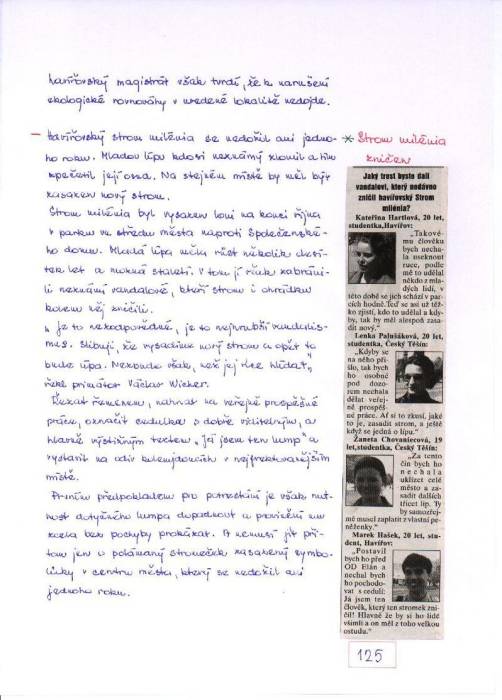 havířovský magistrát však tvrdí, že k narušení
ekologické rovnováhy v uvedené lokalitě nedojde.
– Havířovský strom milénia se nedožil ani jedno-
ho roku. Mladou lípu kdosi neznámý zlomil a tím
zpečetil její osud. Na stejném místě by měl být
zasazen nový strom.
Strom milénia byl vysazen loni na konci října
v parku ve středu města naproti Společenské-
ho domu. Mladá lípa měla růst několik desíti-
let a možná staletí. V tom jí však zabráni-
li neznámí vandalové, kteří strom i ohrádku
kolem něj zničili.
" Je to nezodpovědné, je to nejhrubší vandalis-
mus. Slibuji, že vysadíme nový strom a opět to
bude lípa. Nebude však, než jej lze hlídat,"
řekl primátor Václav Wicher.
řemenem, nahnat na veřejně prospěšné
práce, označit cedulkou s dobře viditelným, a
hlavně výstižným textem „Já jsem ten lump" a
vystavit na odiv kolemjdoucích v nejfrekventovanějším
místě.
Prvním předpokladem pro potrestání je však nut-
nost dotyčného lumpa dopadnout a provinění mu
zcela bez pochyby prokázat. A nemusí jít při-
tom jen o polámaný stromeček zasazený symbo-
licky v centru města, který se nedožil ani
jednoho roku.
* Strom milénia
zničen
Jaký trest byste dali
vandalovi, který nedávno
zničil havířovský Strom
milénia?
Kateřina Hartlová, 20 let,
studentka, Havířov:
„Takové-
mu člověku
bych necha-
la useknout
ruce, podle
mě to udělal
někdo z mla-
dých lidí, v
této době se jich schází v par-
cích hodně. Teď se asi už těž-
ko zjistí, kdo to udělal a kdy-
by, tak by měl alespoň zasa-
dit nový."
Lenka Palušáková, 20 let,
studentka, Český Těšín:
„Kdyby se
na něho při-
šlo, tak bych
ho osobně
pod dozo-
rem nechala
dělat veřej-
ně prospěš-
né práce. Ať si to zkusí, jaké
to je, zasadit strom, a ještě
když se jedná o lípu."
Žaneta Chovaniecová, 19
let, studentka, Český Těšín:
„Za tento
čin bych ho
nechala
uklízet celé
město a za-
sadit dalších
třicet líp. Ty
by samozřej-
mě musel zaplatit z vlastní pe-
něženky."
Marek Hašek, 20 let, stu-
dent, Havířov:
„Postavil
bych ho před
OD Elán a
nechal bych
ho pochodo-
vat s cedulí:
Já jsem ten
člověk, který ten stromek zni-
čil! Hlavně že by si ho lidé
všimli a on měl z toho velkou
ostudu."
125